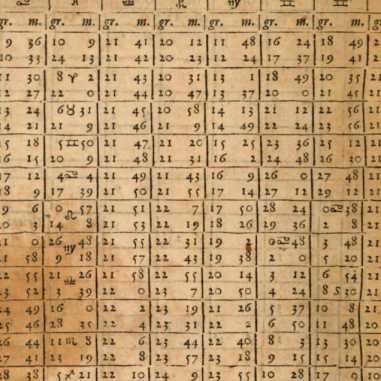 gr. m. gr. m. gr. m. gr. m. gr. m. gr. m. gr.
9 36 10 9 21 41 20 12 11 48 16 24 18 49 2
33 24 13 21 42 20 23 12 24 17 37 19 41 21
30 8 ♈ 2 21 43 20 31 13 1 18 49 20 35 21
27 22 0 21 44 20 47 13 37 20 0 21 45 21
24 6 ♉ 31 21 45 20 58 14 13 21 12 22 56 21
21 21 9 21 46 21 9 14 49 22 24 23 56 21
18 5 ♊ 50 21 47 21 20 15 25 23 36 25 12 21
15 20 9 21 48 21 31 16 2 24 48 26 30 21
12 4 ♋ 21 21 49 21 43 16 9 26 0 27 48 21
9 17 39 21 50 21 55 17 14 27 12 29 12 21
6 0 ♌ 57 21 51 22 7 17 50 28 24 0 ♋ 38 21
3 14 8 21 53 22 19 18 26 29 36 2 8 21
0 26 ♍ 48 21 55 22 31 19 0 ♋ 48 3 48 21
58 9 18 21 57 22 43 19 38 2 0 5 20
55 21 ♎ 26 21 58 22 55 20 14 3 12 6 54 21
52 3 39 22 0 23 7 20 50 4 24 8 30 21
49 16 0 22 23 19 21 26 5 37 10 8 21
46 28 35 22 4 23 31 22 2 6 50 11 48 20
44 11 ♏ 8 22 6 23 44 22 40 8 3 13 30 20
41 23 19 22 8 23 57 23 18 9 15 15 14 20
38 5 ♐ 21 22 10 24 9 23 55 10 28 17 0 10